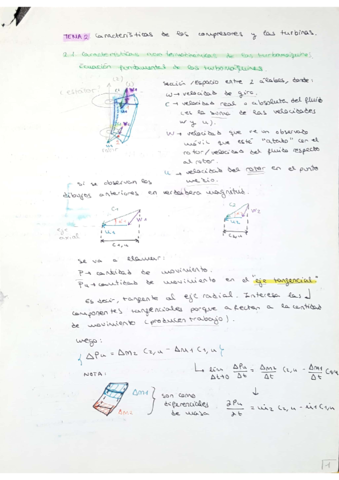 TEMA 2: Características de los compresores y las turbinas.
2.1. Características no dimensionales de las turbomáquinas.
Ecuación fundamental de las turbomáquinas
(estator)
espacio entre 2 álabes, donde:
w → velocidad de giro.
c → velocidad real o absoluta del fluido
(es la suma de las velocidades
w y u).
W → velocidad que ve un observador
móvil que esté "atado" con el
rotor / velocidad del fluido respecto
al rotor.
u → velocidad del rotor en el punto
medio.
si se observan los
dibujos anteriores en verdadera magnitud.
C1
W1
U1
C1,u
C2
W2
C2,u
se va a llamar:
P → cantidad de movimiento.
Pu → cantidad de movimiento en el "eje tangencial"
Es decir, tangente al eje radial. Interesa las
componentes tangenciales porque afectan a la cantidad
de movimiento (producen trabajo).
luego:
ΔPu = Δm2 C2,u - Δm1 C1,u
lim Δt→0 ΔPu/Δt = Δm2/Δt C2,u - Δm1/Δt C1,u
NOTA:
Δm2
Δm1
son como
diferenciales
de masa
∂Pu/∂t = ṁ2 C2,u - ṁ1 C1,u